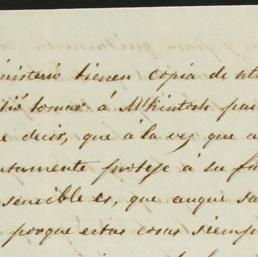 nisterio tienen copia de
tomar á McKintosh par
e decir, que á la vez que a
utamente proteje á su fa
sencible es, que auque sa
porque estas cosas siemp